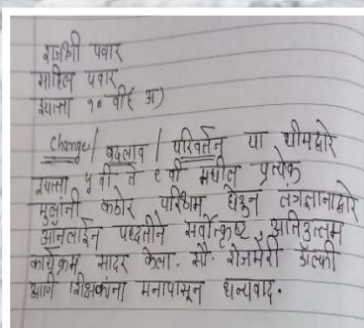 राजश्री पवार
साहिल पवार
इयत्ता १० वी (अ)
change / बदलाव / परिवर्तन या थीमद्वारे
इयत्ता ५ वी ते ९ वी मधील प्रत्येक
मुलांनी कठोर परिश्रम घेऊन तंत्रज्ञानाद्वारे
आनलाईन पध्दतीने सर्वोत्कृष्ट, अतिउत्तम
कार्यक्रम सादर केला. सौ. रोजमेरी
आणि शिक्षकांना मनापासून धन्यवाद.